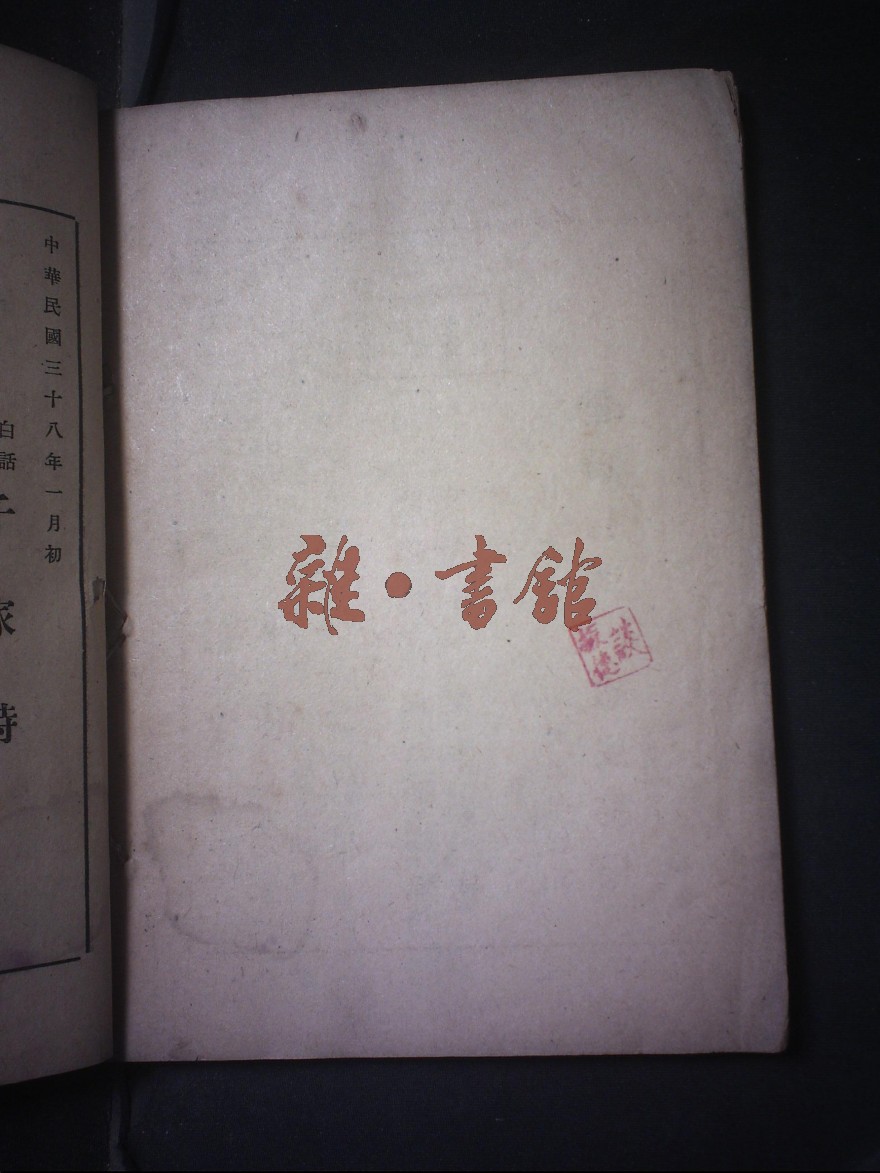 中華民國三十八年一月初
白話
千家詩
雜·書館
談
敬德